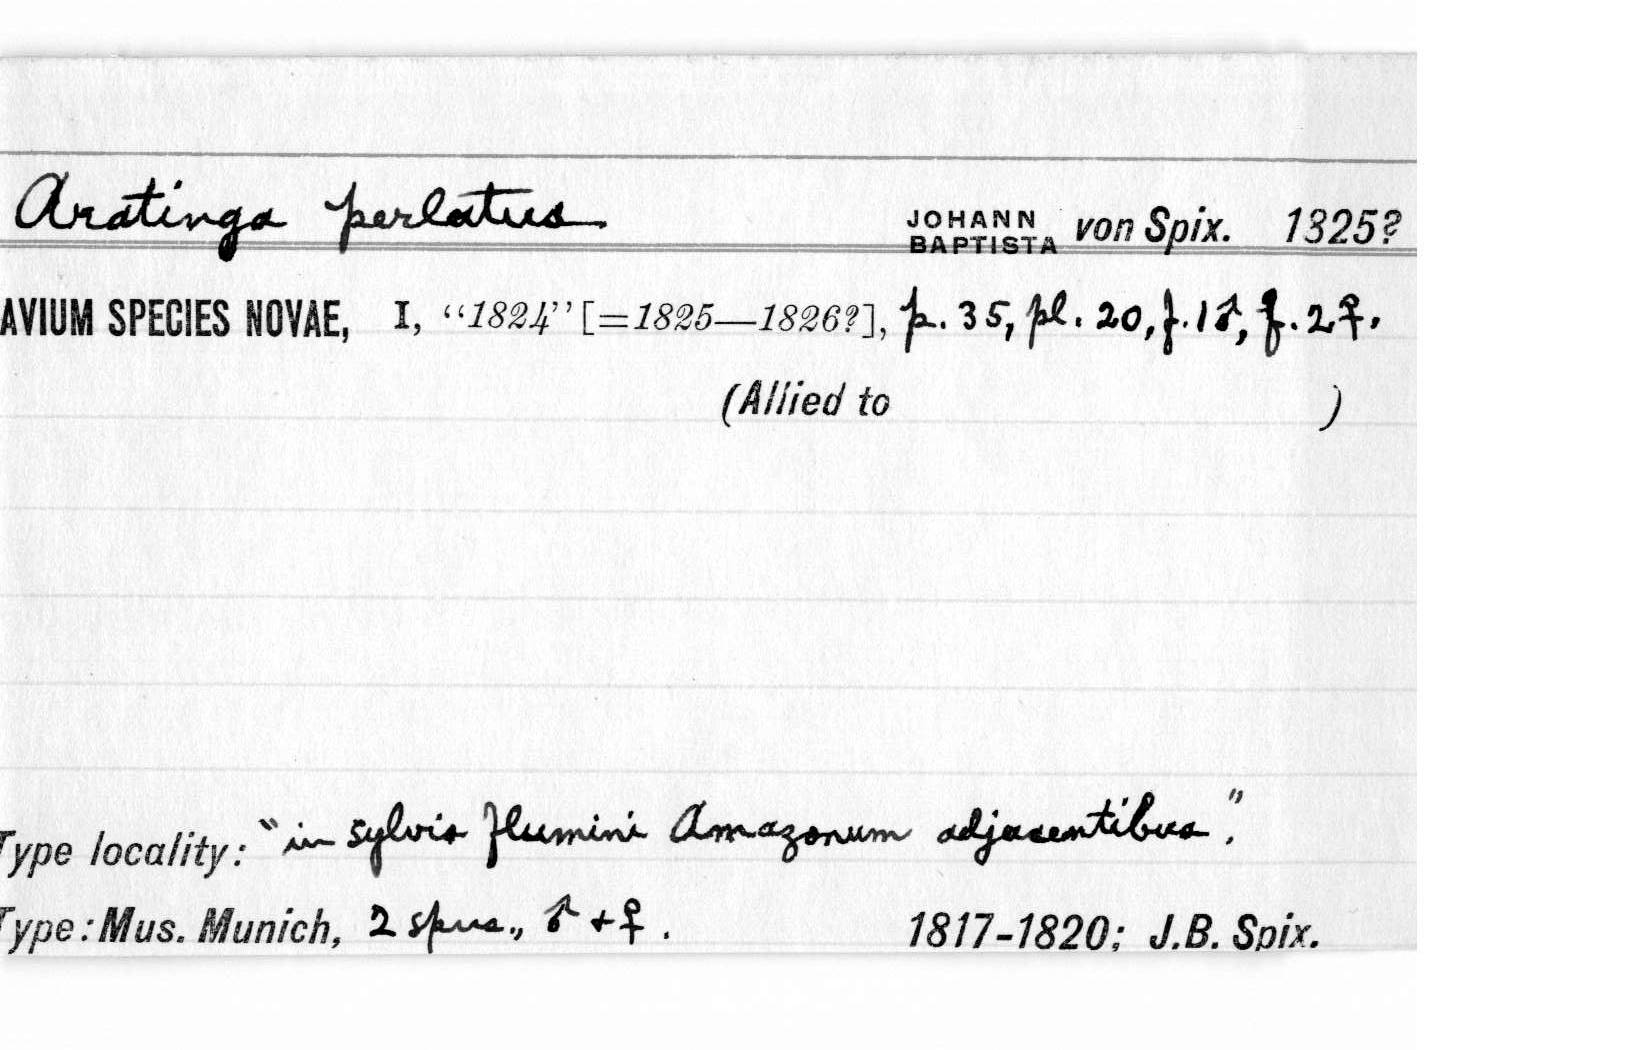 Aratinga perlatus JOHANN BAPTISTA von Spix. 1825?
AVIUM SPECIES NOVAE, I, “1824” [=1825—1826?], p. 35, pl. 20, f. 1♂, f. 2♀.
(Allied to )
Type locality: "in sylvis flumini Amazonum adjacentibus".
Type: Mus. Munich, 2 spns., ♂ + ♀. 1817-1820; J.B. Spix.